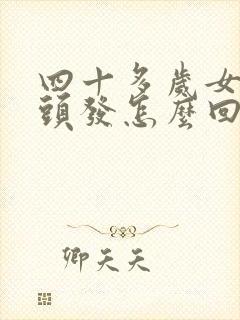 四十多歲女
頭發怎麼回
卿天天